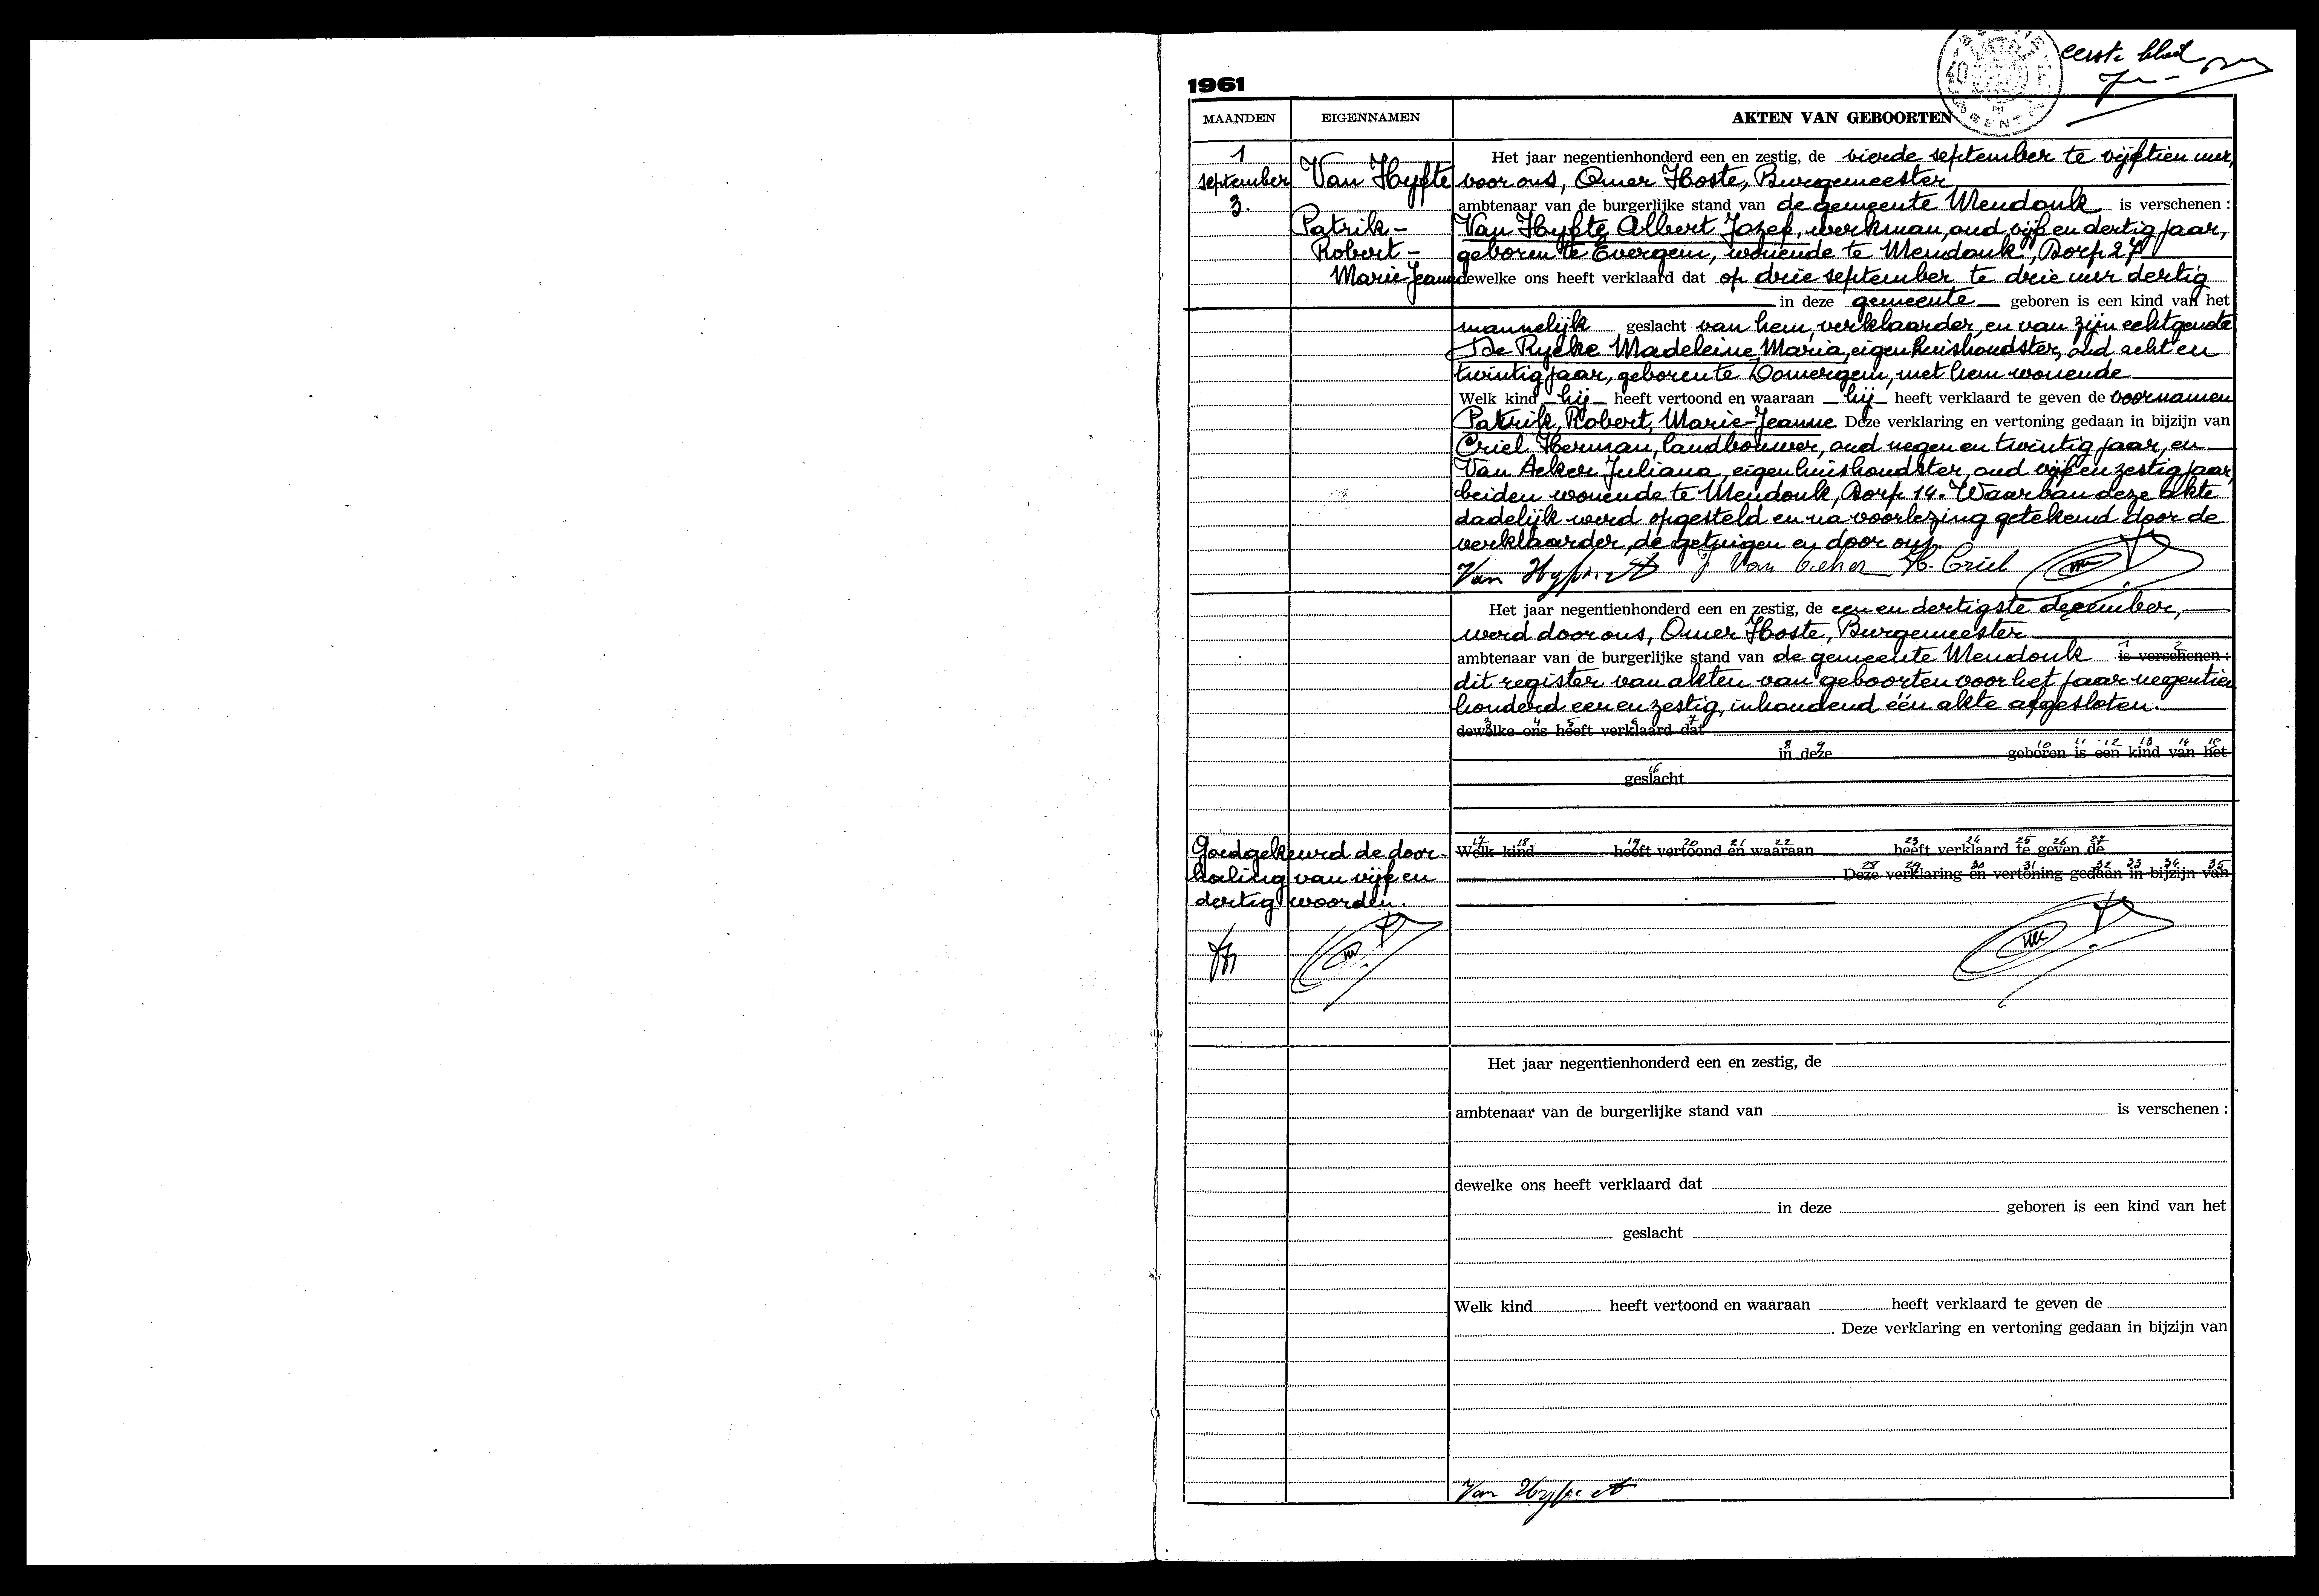 eerste blad
1961
MAANDEN EIGENNAMEN AKTEN VAN GEBOORTEN
1
september
3.
Van Hyfte
Patrik-
Robert-
Marie-Jeanne
Het jaar negentienhonderd een en zestig, de vierde september te vijftien uur,
voor ons, Omer Hoste, Burgemeester
ambtenaar van de burgerlijke stand van de gemeente Mendonk is verschenen :
Van Hyfte Albert Jozef, werkman, oud vijf en dertig jaar,
geboren te Evergem, wonende te Mendonk, Dorp 27
dewelke ons heeft verklaard dat op drie september te drie uur dertig
in deze gemeente geboren is een kind van het
mannelijk geslacht van hem, verklaarder, en van zijn echtgenote
De Rycke Madeleine Maria, eigenhuishoudster, oud acht en
twintig jaar, geboren te Lomergem, met hem wonende
Welk kind hij heeft vertoond en waaraan hij heeft verklaard te geven de voornamen
Patrik, Robert, Marie-Jeanne Deze verklaring en vertoning gedaan in bijzijn van
Criel Herman, landbouwer, oud negen en twintig jaar, en
Van Acker Juliana, eigenhuishoudster, oud vijf en zestig jaar,
beiden wonende te Mendonk, Dorp 14. Waarvan deze akte
dadelijk werd opgesteld en na voorlezing getekend door de
verklaarder, de getuigen en door ons,
Van Hyfte A J Van Acker H. Criel
Het jaar negentienhonderd een en zestig, de een en dertigste december,
werd door ons, Omer Hoste, Burgemeester
ambtenaar van de burgerlijke stand van de gemeente Mendonk 1 2 is verschenen :
dit register van akten van geboorten voor het jaar negentien
honderd een en zestig, inhoudend één akte afgesloten.
3 4 5 6 7
dewelke ons heeft verklaard dat
8 9 10 11 12 13 14 15
in deze geboren is een kind van het
16
geslacht
17 18 19 20 21 22 23 24 25 26 27
Welk kind heeft vertoond en waaraan heeft verklaard te geven de
28 29 30 31 32 33 34 35
. Deze verklaring en vertoning gedaan in bijzijn van
Goedgekeurd de door-
haling van vijf en
dertig woorden.
Het jaar negentienhonderd een en zestig, de
ambtenaar van de burgerlijke stand van is verschenen :
dewelke ons heeft verklaard dat
in deze geboren is een kind van het
geslacht
Welk kind heeft vertoond en waaraan heeft verklaard te geven de
. Deze verklaring en vertoning gedaan in bijzijn van
Van Hyfte A